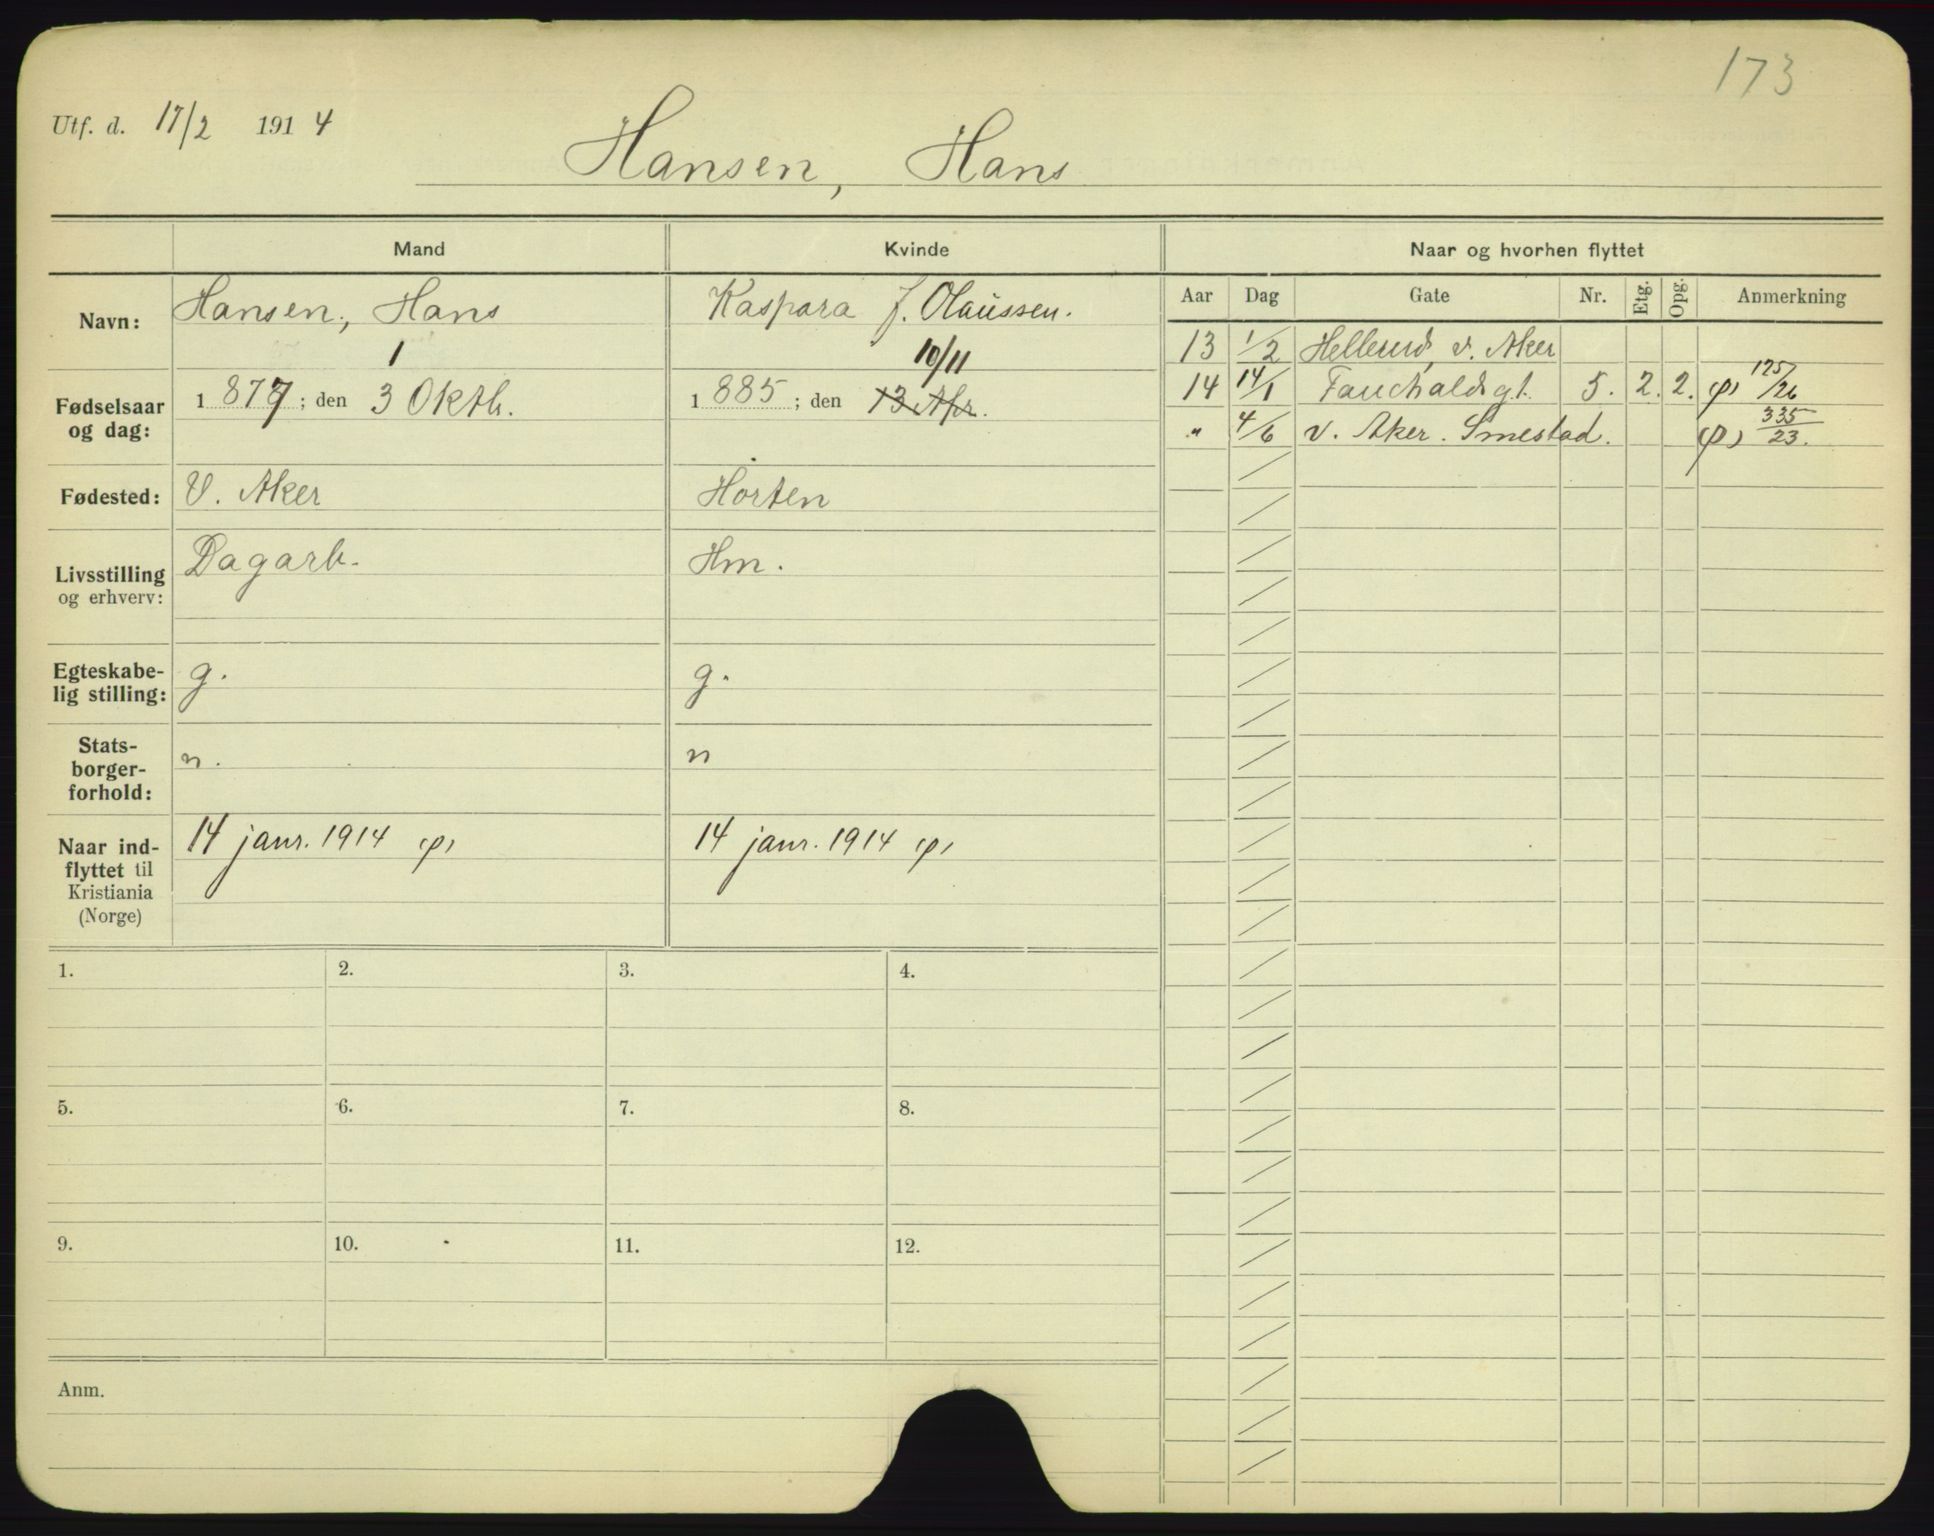 173
Utf. d. 17/2 1914
Hansen, Hans
Mand
Kvinde
Naar og hvorhen flyttet
Navn:
Hansen, Hans
Kaspara J. Olaussen.
1
10/11
Fødselsaar og dag:
1 877 ; den 3 Oktb.
1 885 ; den 13 Apr.
Fødested:
V. Aker
Horten
Livsstilling og erhverv:
Dagarb.
Hm.
Egteskabe-
lig stilling:
g.
g.
Stats-
borger-
forhold:
n.
n
Naar ind-
flyttet til
Kristiania
(Norge)
14 janr. 1914 (p)
14 janr. 1914 (p)
Aar Dag Gate Nr. Etg. Opg. Anmerkning
13 1/2 Hellerud, v. Aker
14 14/1 Fauchaldsgt. 5. 2. 2. (p) 175/26
" 4/6 V. Aker. Smestad. (p) 335/23.
1. 2. 3. 4.
5. 6. 7. 8.
9. 10. 11. 12.
Anm.